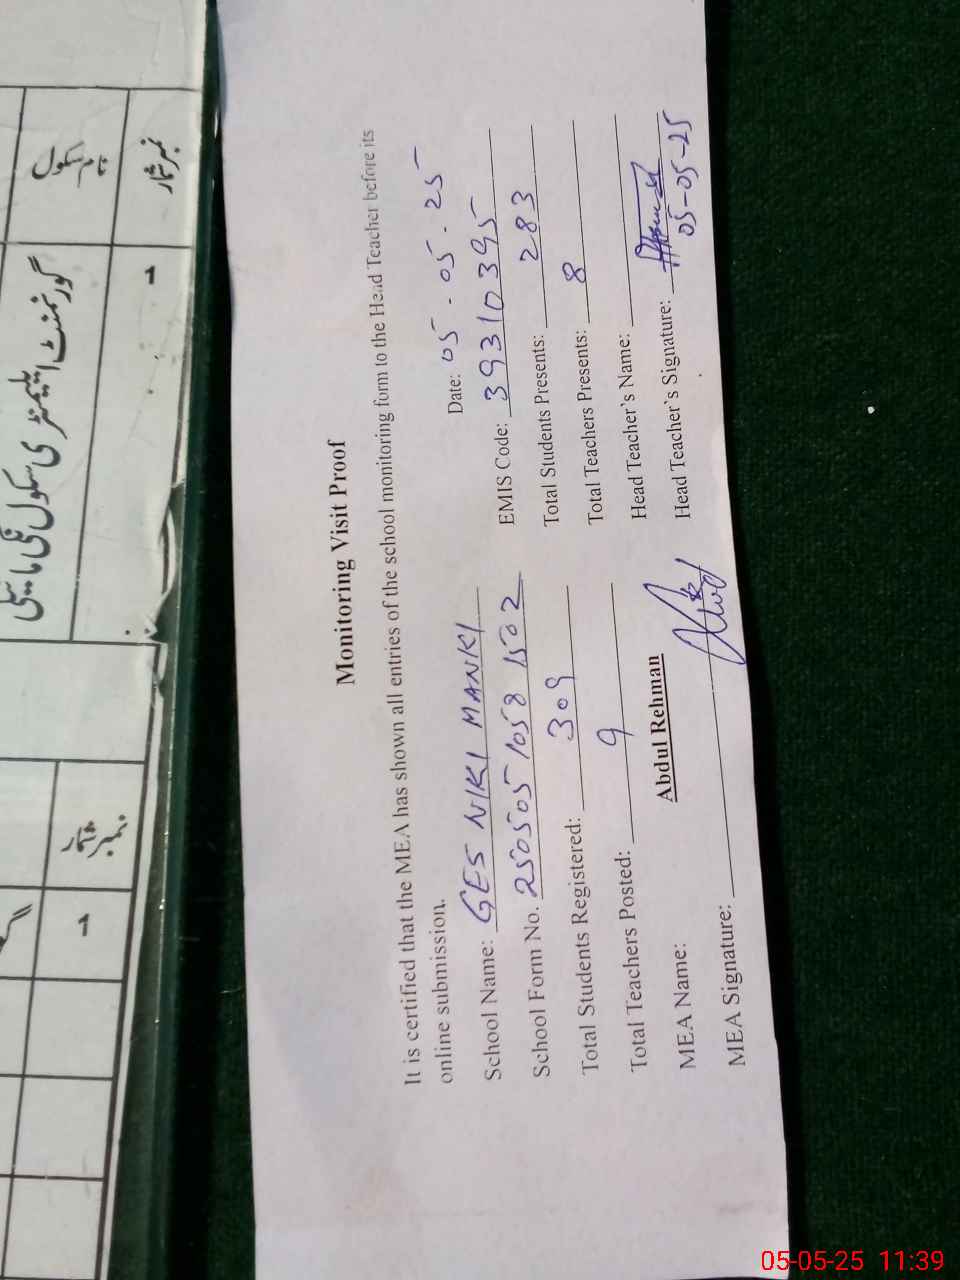 Monitoring Visit Proof
It is certified that the MEA has shown all entries of the school monitoring form to the Head Teacher before its
online submission.
Date: 05-05-25
School Name: GES NIKI MANKI
EMIS Code: 39310395
School Form No. 2505051058 1502
Total Students Presents: 283
Total Students Registered: 309
Total Teachers Presents: 8
Total Teachers Posted: 9
Head Teacher's Name:
MEA Name: Abdul Rehman
Head Teacher's Signature:
05-05-25
MEA Signature:
نمبر شمار
نام سکول
۱
گورنمنٹ ایلیمنٹری سکول نکی مانکی
نمبر شمار
1
05-05-25 11:39